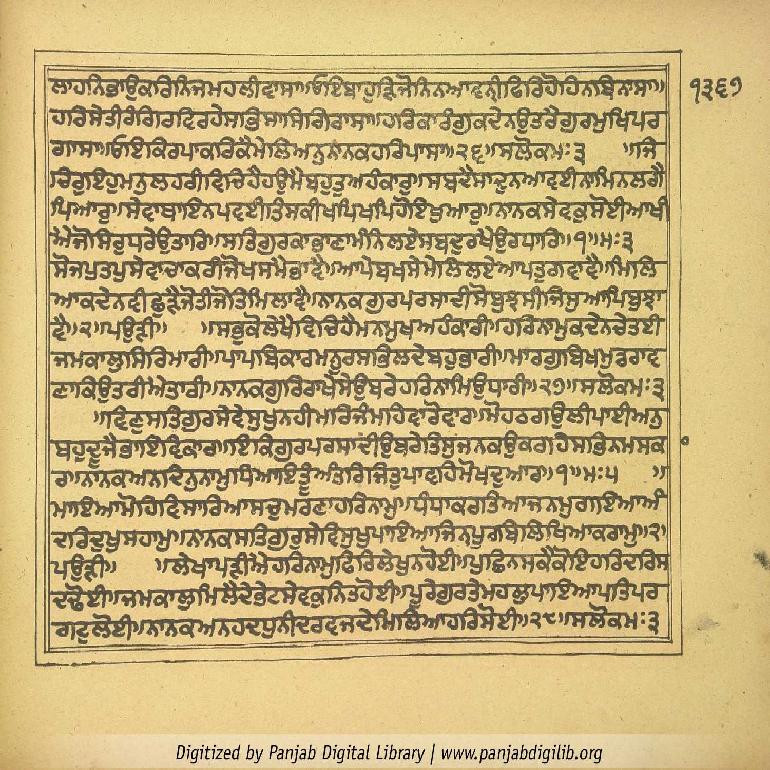 ਲਾਹਨਿਭਾਉਕਰਿਨਿਜਮਹਲੀਵਾਸਾ॥ਓਇਬਾਹੁੜਿਜੋਨਿਨਆਵਨੀਫਿਰਿਹੋਹਿਨਬਿਨਾਸਾ॥ ੧੩੬੭
ਹਰਿਸੇਤੀਰੰਗਿਰਵਿਰਹੇਸਭਿਸਾਸਿਗਿਰਾਸਾ॥ਹਰਿਕਾਰੰਗੁਕਦੇਨਉਤਰੈਗੁਰਮੁਖਿਪਰ
ਗਾਸਾ॥ਓਇਕਿਰਪਾਕਰਿਕੈਮੇਲਿਅਨੁਨਾਨਕਹਰਿਪਾਸਾ॥੨੬॥ਸਲੋਕਮਃ੩ ॥ਜਿ
ਚਿਰੁਇਹੁਮਨੁਲਹਰੀਵਿਚਿਹੈਹਉਮੈਬਹੁਤੁਅਹੰਕਾਰੁ॥ਸਬਦੈਸਾਦੁਨਆਵਈਨਾਮਿਨਲਗੈ
ਪਿਆਰੁ॥ਸੇਵਾਥਾਇਨਪਵਈਤਿਸਕੀਖਪਿਖਪਿਹੋਇਖੁਆਰੁ॥ਨਾਨਕਸੇਵਕੁਸੋਈਆਖੀ
ਐਜੋਸਿਰੁਧਰੇਉਤਾਰਿ॥ਸਤਿਗੁਰਕਾਭਾਣਾਮੰਨਿਲਏਸਬਦੁਰਖੈਉਰਧਾਰਿ॥੧॥ਮਃ੩
ਸੋਜਪੁਤਪੁਸੇਵਾਚਾਕਰੀਜੋਖਸਮੈਭਾਵੈ॥ਆਪੇਬਖਸੇਮੇਲਿਲਏਆਪਤੁਗਵਾਵੈ॥ਮਿਲਿ
ਆਕਦੇਨਵੀਛੁੜੈਜੋਤੀਜੋਤਿਮਿਲਾਵੈ॥ਨਾਨਕਗੁਰਪਰਸਾਦੀਸੋਬੁਝਸੀਜਿਸੁਆਪਿਬੁਝਾ
ਵੈ॥੨॥ਪਉੜੀ॥ ॥ਸਭੁਕੋਲੇਖੇਵਿਚਿਹੈਮਨਮੁਖੁਅਹੰਕਾਰੀ॥ਹਰਿਨਾਮੁਕਦੇਨਚੇਤਈ
ਜਮਕਾਲੁਸਿਰਿਮਾਰੀ॥ਪਾਪਬਿਕਾਰਮਨੂਰਸਭਿਲਦੇਬਹੁਭਾਰੀ॥ਮਾਰਗੁਬਿਖਮੁਡਰਾਵ
ਣਾਕਿਉਤਰੀਐਤਾਰੀ॥ਨਾਨਕਗੁਰਿਰਾਖੇਸੇਉਬਰੇਹਰਿਨਾਮਿਉਧਾਰੀ॥੨੭॥ਸਲੋਕਮਃ੩
॥ਵਿਣੁਸਤਿਗੁਰਸੇਵੇਸੁਖੁਨਹੀਮਰਿਜੰਮਹਿਵਾਰੋਵਾਰ॥ਮੋਹਠਗਉਲੀਪਾਈਅਨੁ
ਬਹੁਦੂਜੈਭਾਇਵਿਕਾਰ॥ਇਕਿਗੁਰਪਰਸਾਦੀਉਬਰੇਤਿਸੁਜਨਕਉਕਰਹਿਸਭਿਨਮਸਕ
ਰ॥ਨਾਨਕਅਨਦਿਨੁਨਾਮੁਧਿਆਇਤੂਅੰਤਰਿਜਿਤੁਪਾਵਹਿਮੋਖਦੁਆਰ॥੧॥ਮਃ੫ ॥
ਮਾਇਆਮੋਹਿਵਿਸਾਰਿਆਸਚੁਮਰਣਾਹਰਿਨਾਮੁ॥ਧੰਧਾਕਰਤਿਆਜਨਮੁਗਇਆਅੰ
ਦਰਿਦੁਖੁਸਹਾਮੁ॥ਨਾਨਕਸਤਿਗੁਰੁਸੇਵਿਸੁਖੁਪਾਇਆਜਿਨਪੂਰਬਿਲਿਖਿਆਕਰਾਮੁ॥੨॥
ਪਉੜੀ॥ ॥ਲੇਖਾਪੜੀਐਹਰਿਨਾਮੁਫਿਰਿਲੇਖੁਨਹੋਈ॥ਪੁਛਿਨਸਕੈਕੋਇਹਰਿਦਰਿਸ
ਦਢੋਈ॥ਜਮਕਾਲੁਮਿਲੈਦੇਭੇਟਸੇਵਕੁਨਿਤਹੋਈ॥ਪੂਰੇਗੁਰਤੇਮਹਲੁਪਾਇਆਪਤਿਪਰ
ਗਟੁਲੋਈ॥ਨਾਨਕਅਨਹਦਧੁਨੀਦਰਵਜਦੇਮਿਲਿਆਹਰਿਸੋਈ॥੨੮॥ਸਲੋਕਮਃ੩
Digitized by Panjab Digital Library | www.panjabdigilib.org